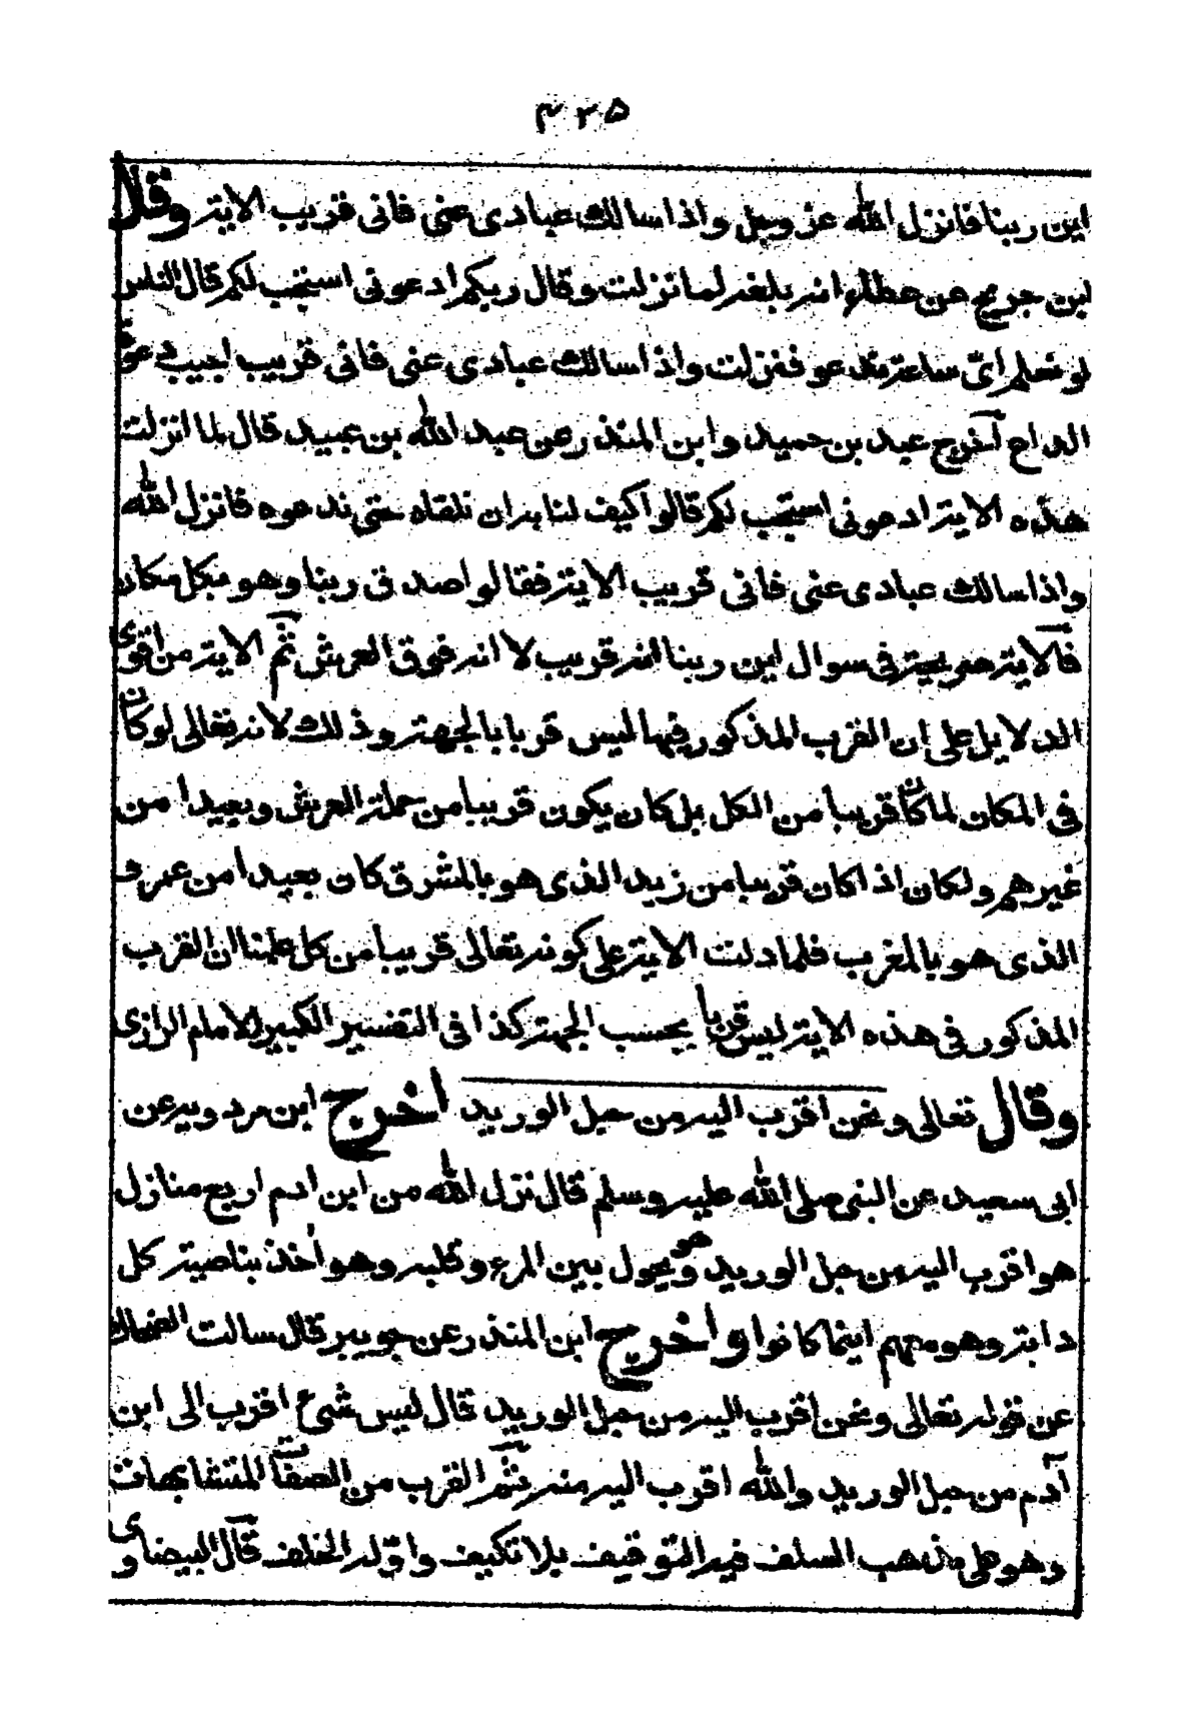 ۴۲۵
اين ربنا فانزل الله عز وجل واذا سالك عبادى عنى فانى قريب الاية وقال
ابن جريج عن عطاء انه بلغه لما نزلت وقال ربكم ادعونى استجب لكم قال الناس
لو نعلم اىّ ساعة ندعو فنزلت واذا سالك عبادى عنى فانى قريب اجيب دعوة
الداع اخرج عبد بن حميد وابن المنذر عن عبد الله بن عبيد قال لما انزلت
هذه الاية ادعونى استجب لكم قالوا كيف لنا به ان نلقاه حتى ندعوه فانزل الله
واذا سالك عبادى عنى فانى قريب الاية فقالوا صدق ربنا وهو بكل مكان
فالاية صريحة فى سوال اين ربنا انه قريب لا انه فوق العرش ثم الاية من اقوى
الدلايل على ان القرب المذكور فيها ليس قربا بالجهة وذلك لانه تعالى لو كان
فى المكان لما كان قريبا من الكل بل كان يكون قريبا من حملة العرش وبعيدا من
غيرهم ولكان اذا كان قريبا من زيد الذى هو بالمشرق كان بعيدا من عمرو
الذى هو بالمغرب فلما دلت الاية على كونه تعالى قريبا من كل علمنا ان القرب
المذكور فى هذه الاية ليس قربا بحسب الجهة كذا فى التفسير الكبير للامام الرازى
وقال تعالى ونحن اقرب اليه من حبل الوريد اخرج ابن مردويه عن
ابى سعيد عن النبى صلى الله عليه وسلم قال نزل الله من ابن ادم اربع منازل
هو اقرب اليه من حبل الوريد وهو يحول بين المرء وقلبه وهو أخذ بناصية كل
دابة وهو معهم اينما كانوا واخرج ابن المنذر عن جويبر قال سالت الضحاك
عن قوله تعالى ونحن اقرب اليه من حبل الوريد قال ليس شىء اقرب الى ابن
آدم من حبل الوريد والله اقرب اليه منه ثم القرب من الصفات المتشابهات
وهو على مذهب السلف فيه التوقيف بلا تكييف واوّله الخلف قال البيضاوى